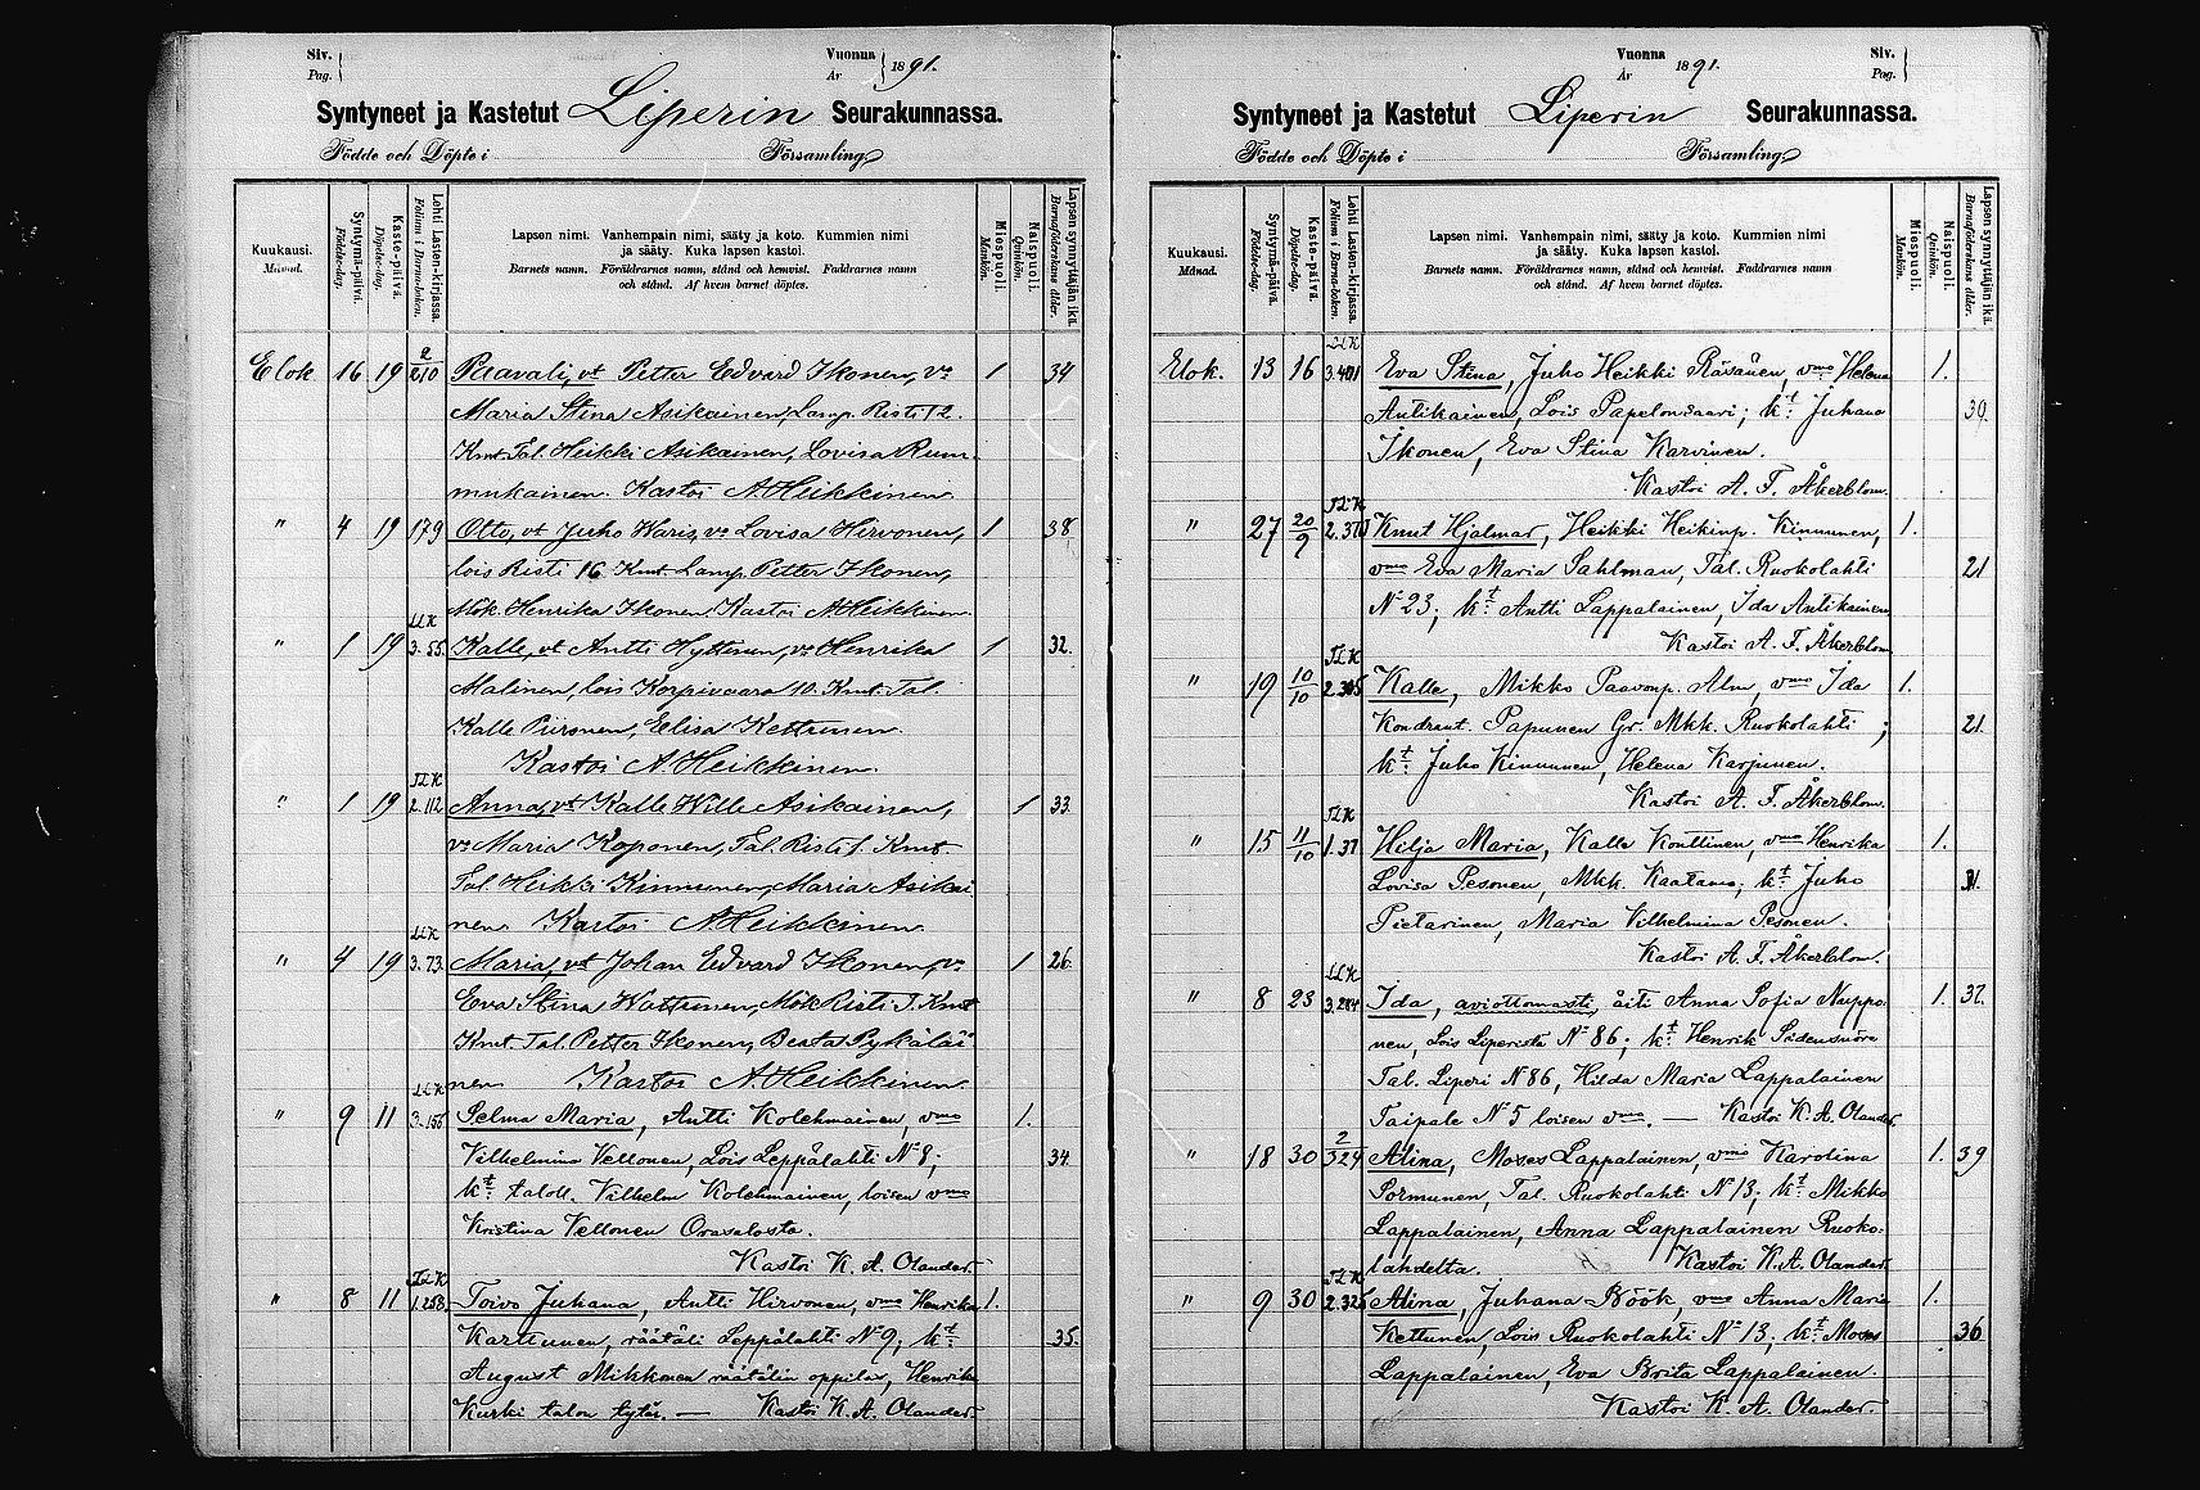 Siv.
Pag.
Vuonna
År
1891.
Syntyneet ja Kastetut Liperin Seurakunnassa.
Födde och Döpte i Församling
Kuukausi.
Månad.
Syntymä-päivä.
Födelse-dag.
Kaste-päivä.
Döpelse-dag.
Lehti Lasten-kirjassa.
Folium i Barna-boken.
Lapsen nimi. Vanhempain nimi, sääty ja koto. Kummien nimi
ja sääty. Kuka lapsen kastoi.
Barnets namn. Föräldrarnes namn, stånd och hemvist. Faddrarnes namn
och stånd. Af hvem barnet döptes.
Miespuoli.
Mankön.
Naispuoli.
Qvinkön.
Lapsen synnyttäjän ikä.
Barnaföderskans ålder.
Elok 16 19 2/210 Paavali, vt Petter Edvard Ikonen, va 1 34
Maria Stina Asikainen, Lamp. Risti 12.
Kmt. Tal. Heikki Asikainen, Lovisa Rum-
mukainen. Kastoi A. Heikkinen.
" 4 19 179 Otto, vt Juho Waris, va Lovisa Hirvonen, 1 38
lois Risti 16. Kmt. Lamp. Petter Ikonen,
Mök. Henrika Ikonen. Kastoi A. Heikkinen.
LLK
" 1 19 3.55. Kalle, vt Antti Hyttinen, va Henrika 1 32.
Malinen, lois Korpivaara 10. Kmt. Tal.
Kalle Piironen, Eelisa Kettunen.
Kastoi A. Heikkinen.
TLK
" 1 19 2.112 Anna, vt Kalle Wille Asikainen, 1 33
va Maria Koponen, Tal. Risti 1. Kmt.
Tal. Heikki Kinnunen, Maria Asikai
nen. Kastoi A. Heikkinen.
LLK
" 4 19 3.73. Maria, vt Johan Edvard Ikonen, va 1 26.
Eeva Stina Wattunen, Mök Risti 7. Kmt
Kmt. Tal. Petter Ikonen, Beata Pykäläi
nen Kastoi A. Heikkinen.
LLK
" 9 11 3.156 Selma Maria, Antti Kolehmainen, vmo 1.
Vilhelmina Vellonen, Lois Leppälahti No 8; 34.
kt: taloll. Vilhelm Kolehmainen, loisen vmo
Kristina Vellonen Orasalosta.
Kastoi K. A. Olander.
TLK
" 8 11 1.258. Toivo Juhana, Antti Hirvonen, vmo Henrika 1.
Karttunen, räätäli Leppälahti No 9; kt: 35.
August Mikkonen räätälin oppilas, Henrika
Kurki talon tytär. — Kastoi K. A. Olander.
Vuonna
År
1891.
Siv.
Pag.
Syntyneet ja Kastetut Liperin Seurakunnassa.
Födde och Döpte i Församling
Kuukausi.
Månad.
Syntymä-päivä.
Födelse-dag.
Kaste-päivä.
Döpelse-dag.
Lehti Lasten-kirjassa.
Folium i Barna-boken.
Lapsen nimi. Vanhempain nimi, sääty ja koto. Kummien nimi
ja sääty. Kuka lapsen kastoi.
Barnets namn. Föräldrarnes namn, stånd och hemvist. Faddrarnes namn
och stånd. Af hvem barnet döptes.
Miespuoli.
Mankön.
Naispuoli.
Qvinkön.
Lapsen synnyttäjän ikä.
Barnaföderskans ålder.
LLK
Elok. 13 16 Eva Stina, Juho Heikki Räsänen, vmo Helena 1.
Antikainen, Lois Papelonsaari; kt: Juhana 30.
Ikonen, Eva Stina Karvinen.
Kastoi A. F. Åkerblom.
TLK
" 27 20/9 Knut Hjalmar, Heikki Heikinp. Kinnunen, 1.
vmo Eva Maria Sahlman, Tal. Ruokolahti 21
No 23; kt: Antti Lappalainen, Ida Antikainen
Kastoi A. F. Åkerblom
TLK
" 19 10/10 Kalle, Mikko Paavonp. Alm, vmo Ida 1.
Kondraut. Papunen Gr. Mkk. Ruokolahti; 21.
kt: Juho Kinnunen, Helena Karjunen.
Kastoi A. F. Åkerblom.
TLK
" 15 11/10 1.37 Hilja Maria, Kalle Konttinen, vmo Henrika 1.
Lovisa Pesonen, Mkk. Kaatamo; kt: Juho 31.
Pietarinen, Maria Vilhelmina Pesonen.
Kastoi A. F. Åkerblom.
LLK
" 8 23 3.284 Ida, aviottomasti, äiti Anna Sofia Nuppo- 1. 37.
nen, Lois Liperistä No 86; kt: Henrik Sidensnöre
Tal. Liperi No 86, Hilda Maria Lappalainen
Taipale No 5 loisen vmo. — Kastoi K. A. Olander.
" 18 30 2/324 Alina, Moses Lappalainen, vmo Karolina 1. 39
Sormunen, Tal. Ruokolahti No 13; kt: Mikko
Lappalainen, Anna Lappalainen Ruoko-
lahdelta. Kastoi K. A. Olander.
TLK
" 9 30 2.325 Alina, Juhana Böök, vmo Anna Maria 1.
Kettunen, Lois Ruokolahti No 13; kt: Moses 36
Lappalainen, Eva Brita Lappalainen.
Kastoi K. A. Olander.